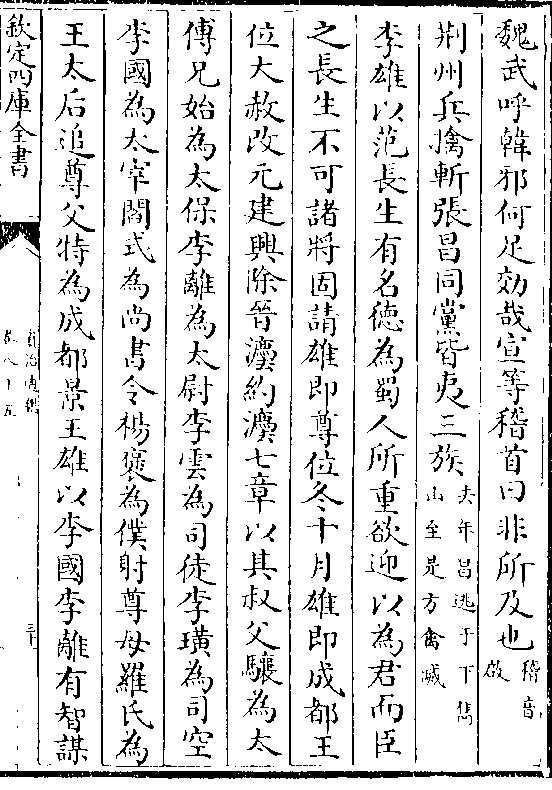 魏武呼韓邪何足効哉宣等稽首曰非所及也稽音啟
荆州兵擒斬張昌同黨皆夷三族去年昌逃于下雋山至是方禽滅
李雄以范長生有名德為蜀人所重欲迎以為君而臣
之長生不可諸將固請雄即尊位冬十月雄即成都王
位大赦改元建興除晉灋約灋七章以其叔父驤為太
傅兄始為太保李離為太尉李雲為司徒李璜為司空
李國為太宰閻式為尚書令楊褒為僕射尊母羅氏為
王太后追尊父特為成都景王雄以李國李離有智謀
欽定四庫全書
資治通鑑
卷八十五